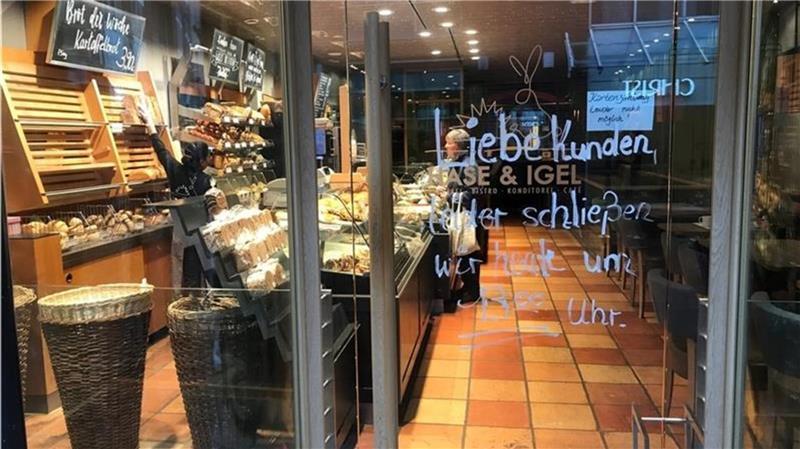 Brot der Woche
Kartoffelbrot
750g
CHRIST
Kartenzahlung
Leider nicht
möglich!
Liebe Kunden,
HASE & IGEL
BISTRO · KONDITOREI · CAFÉ
leider schließen
wir heute um
17⁰⁰ Uhr.